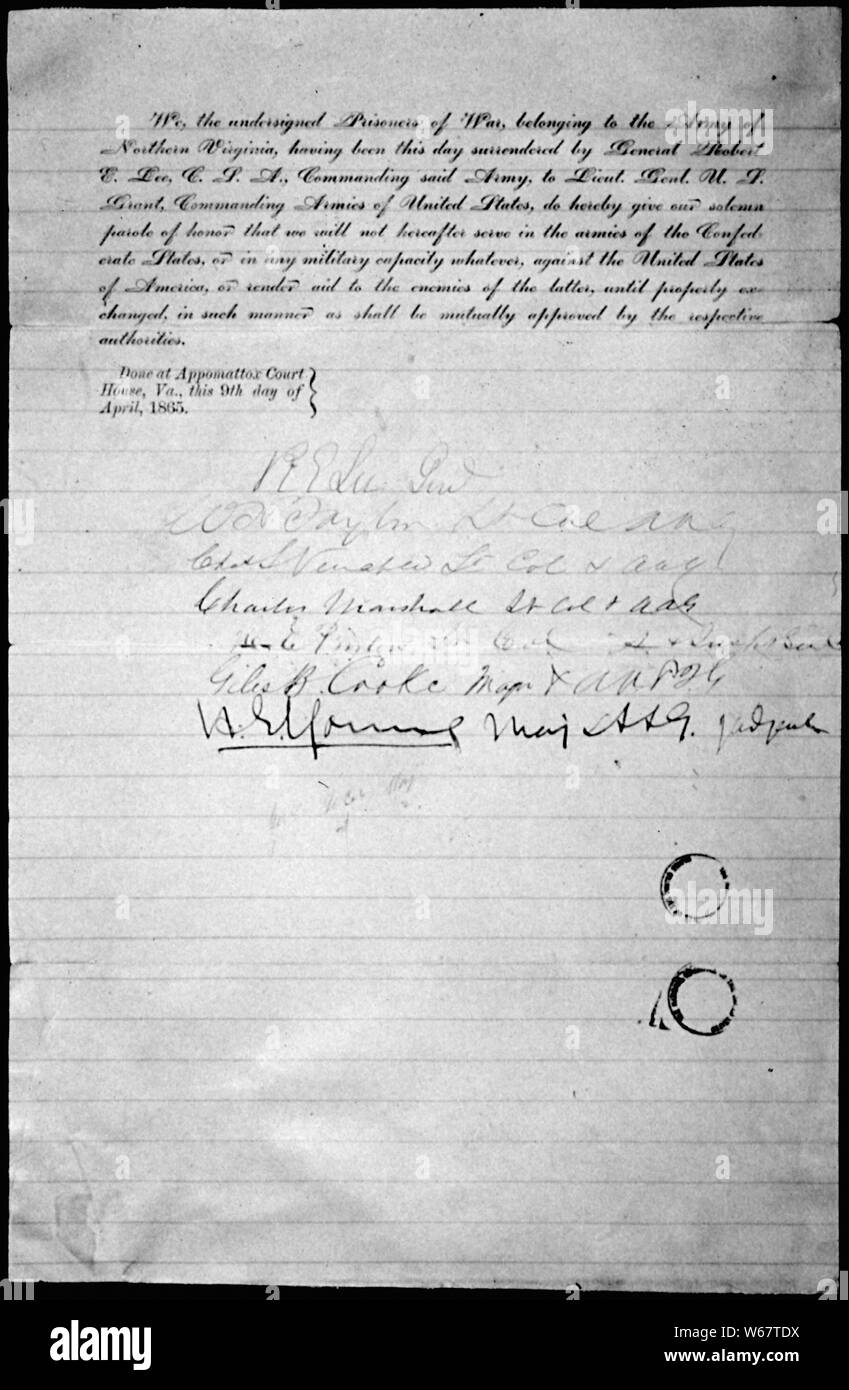 We, the undersigned Prisoners of War, belonging to the Army of
Northern Virginia, having been this day surrendered by General Robert
E. Lee, C. S. A., Commanding said Army, to Lieut. Genl. U. S.
Grant, Commanding Armies of United States, do hereby give our solemn
parole of honor that we will not hereafter serve in the armies of the Confed-
erate States, or in any military capacity whatever, against the United States
of America, or render aid to the enemies of the latter, until properly ex-
changed, in such manner as shall be mutually approved by the respective
authorities.
Done at Appomattox Court
House, Va., this 9th day of
April, 1865.
R E Lee Genl
W H Taylor Lt Col AAG
Chas S Venable Lt Col & AAG
Charles Marshall Lt Col & AAG
H E Lt Col
Giles B. Cooke Major & AAIG
H. E. Young Maj AAG.
alamy
Image ID: W67TDX
www.alamy.com